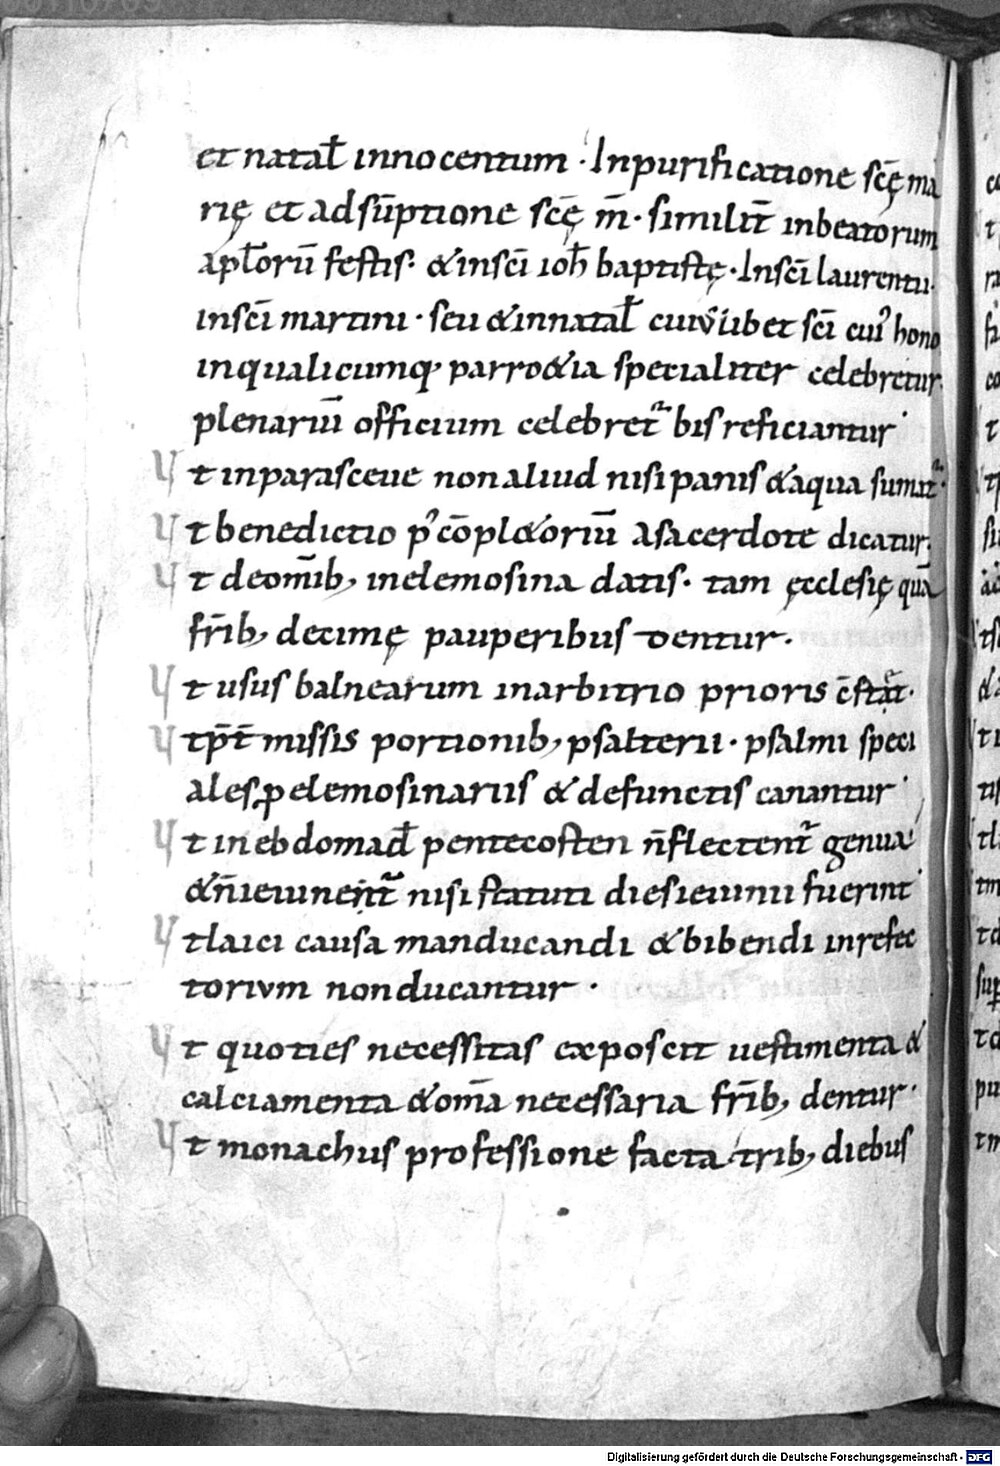 et natał innocentum · In purificatione scę̄ ma
rię et adsūptione scę̄ m̄· similit̄ in beatorum
apłorū festis· & in scī ioh̄ baptistę· In scī laurentii·
in scī martini · seu & in natał cuiuslibet scī cui' hono
in qualicumq, parro&ia specialiter celebretur·
plenariū officium celebret᷑ bis reficiantur ·
Ut in parasceue non aliud nisi panis & aqua sumat᷑·
Ut benedictio p' cōpl&oriū a sacerdote dicatur·
Ut de om̄ib, in elemosina datis· tam ęcclesię quā
fr̄ib, decimę pauperibus dentur·
Ut usus balnearum in arbitrio prioris c̄stat·
Ut p̄t missis portionib, psalterii · psalmi speci
ales, ꝑ elemosinariis & defunctis canantur ·
Ut in ebdomad̄ pentecosten n̄ flectent᷑ genua
& n̄ ieiunent᷑ nisi statuti dies ieiunii fuerint ·
Ut laici causa manducandi & bibendi in refec
torivm non ducantur ·
Ut quoties necessitas exposcit uestimenta &
calciamenta & om̄a necessaria fr̄ib, dentur·
Ut monachus professione facta trib, diebus
Digitalisierung gefördert durch die Deutsche Forschungsgemeinschaft - DFG